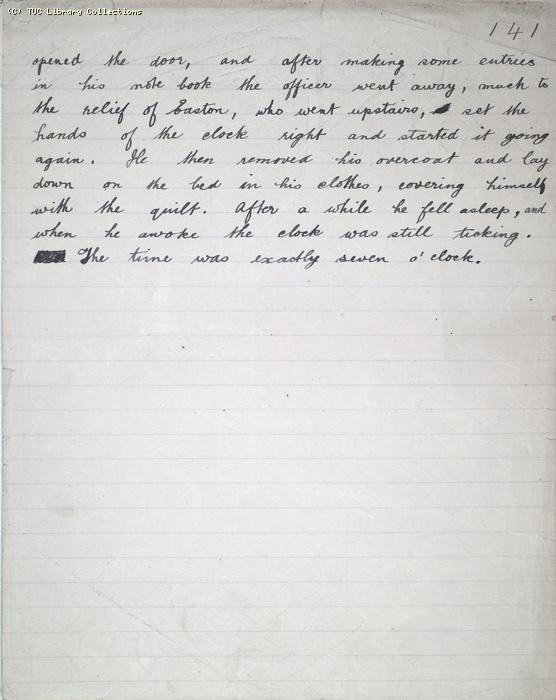 (C) TUC Library Collections
141
opened the door, and after making some entries
in his note book the officer went away, much to
the relief of Easton, who went upstairs, set the
hands of the clock right and started it going
again. He then removed his overcoat and lay
down on the bed in his clothes, covering himself
with the quilt. After a while he fell asleep, and
when he awoke the clock was still ticking.
The time was exactly seven o'clock.